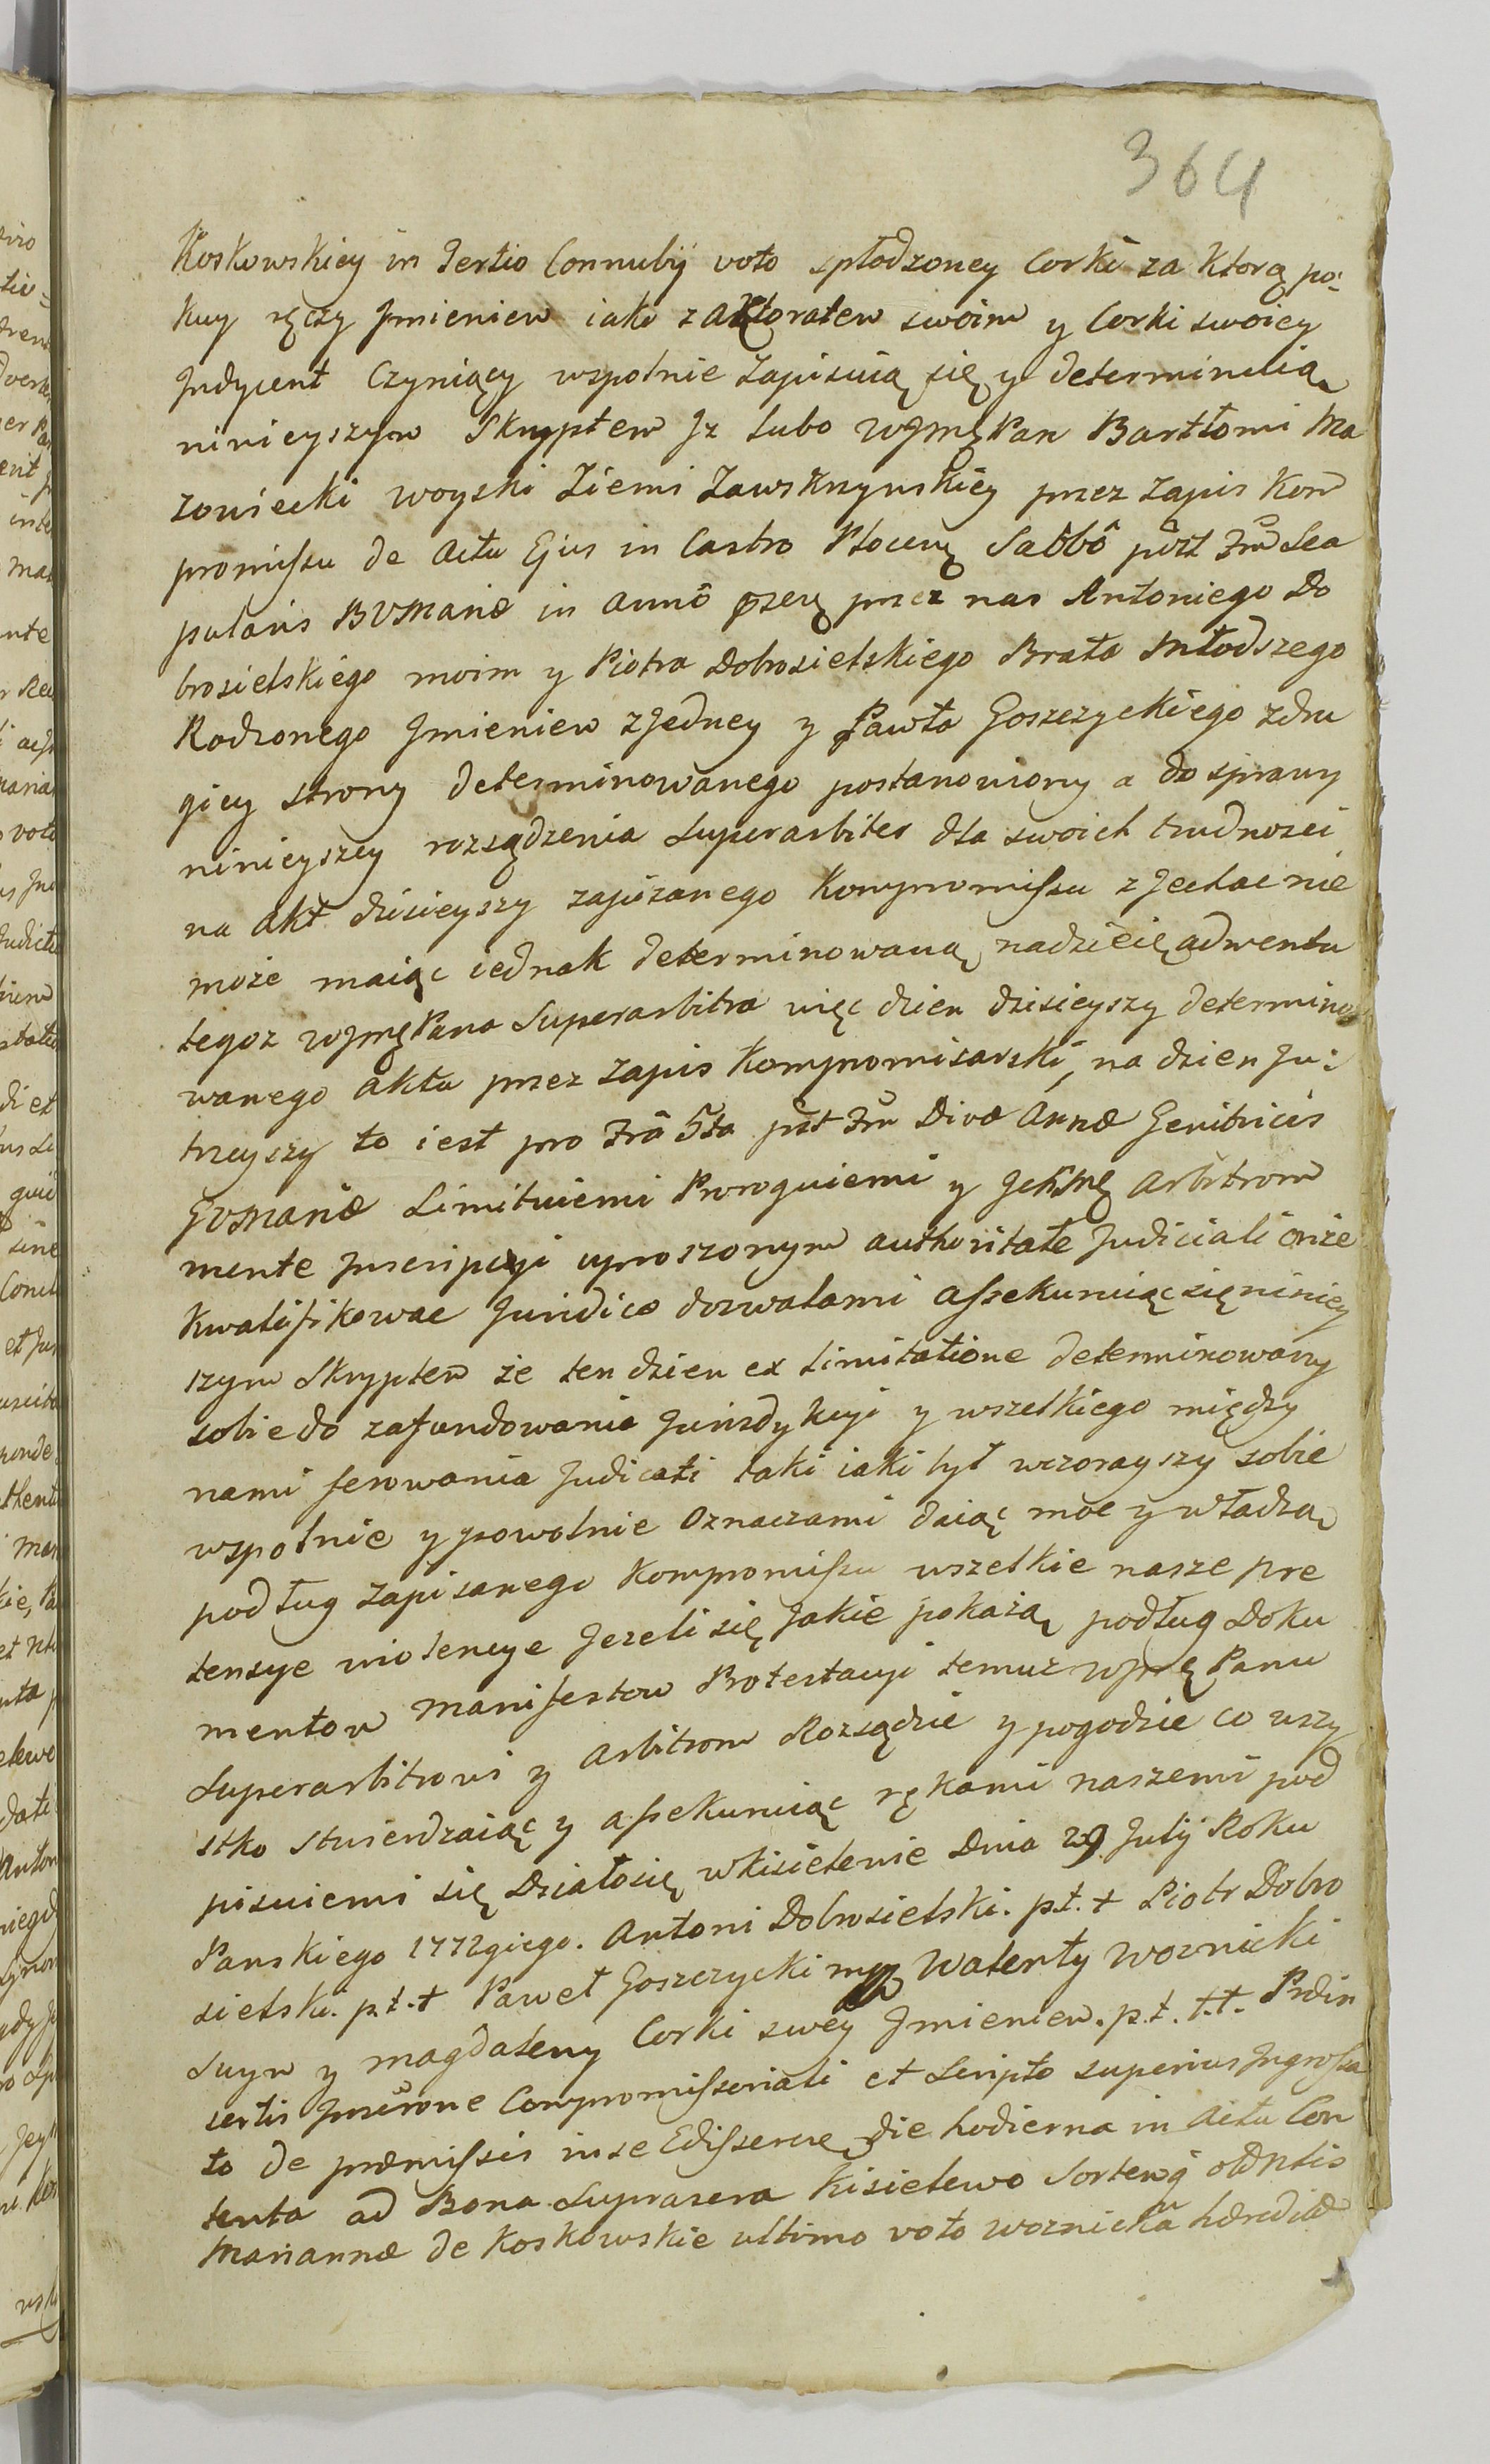 364
Koskowskiey in Tertio Connubij voto spłodzoney Corki za ktorą po:
kuy ręczy Jmieniem iako z aktoratem swoim y Corki swoiey
Indycent Czyniący wspolnie Zapisuią się y determinuią
ninieyszym Skryptem Jz lubo WJmę Pan Bartłomi Ma
zowiecki woyski Ziemi Zawskrzynskiey przez Zapis Kom
promissu de Actu Ejus in Castro Plocen̄ę Sabbô post Frm̄ Sca
pularis BVMariæ in annô prsenę przez nas Antoniego Do
brosielskiego moim y Piotra Dobrosielskiego Brata Młodszego
Rodzonego Jmieniem z Jedney y Pawła Goszczyckiego z dru
giey strony determinowanego postanowiony a do sprawy
ninieyszey rozsądzenia Superarbiter dla swoich trudnosci
na akt dzisieyszy zapisanego Kompromissu z Jechac nie
może maiąc iednak determinowaną nadzieię adwentu
tegoz WJmę Pana Superarbitra więc dzien dzisieyszy determino
wanego aktu przez Zapis Kompromisarski, na dzien Ju:
trzeyszy to iest pro Frâ 5ta pst Frm̄ Divæ Annæ Genitricis
GVMariæ Limituiemi Proroguiemi y Arbitrom
mente Juscripcyi uproszonym authoritate Judiciali onże
Kwalifikowac Juridice dozwalami assekuruiąc się niniey
szym Skryptem że ten dzien ex limitatione determinowany
sobie do zafundowania Jurisdykcyi y wszelkiego między
nami ferowania Judicati taki iaki był wczorayszy sobie
wspolnie y powolnie Oznaczami daiąc moc y władzą
podług Zapisanego Kompromissu wszelkie nasze pre
tensye violencye Jezeli się Jakie pokażą podług Doku
mentow Manifestow Protestacyi temuz WJmę Panu
Superarbitrowi y Arbitrom Rozsądzie y pogodzie co wszy
stko stwierdzaiąc y assekuruiąc rękami naszemi pod
pisuiemi się Działosię w Kisielewie Dnia 29 July Roku
Panskiego 1772giego. Antoni Dobrosielski. p.t.+ Piotr Dobro
sielski. p.t.+ Paweł Goszczycki mp Walenty Woznicki
Swym y Magdaleny Corki swey Jmieniem. p.t. t.t. Prdin
sertis Compromissoriali et Scripto superius Ingrossa
to de præmissis in se Edisserenę die hodierna in Actu Con
tento ad Bona Suprasera Kisielewo Sortem
Mariannæ de Koskowskie ultimo voto Woznicka hæredit